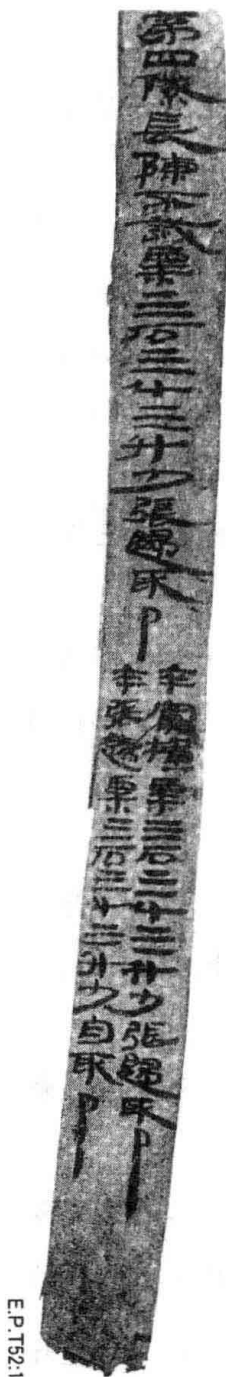 第四隧長陳不識粟三石三斗三升少張歸取卩
卒粟三石三斗三升少張歸取卩
卒張歸粟三石三斗三升少自取卩
E.P.T52:1